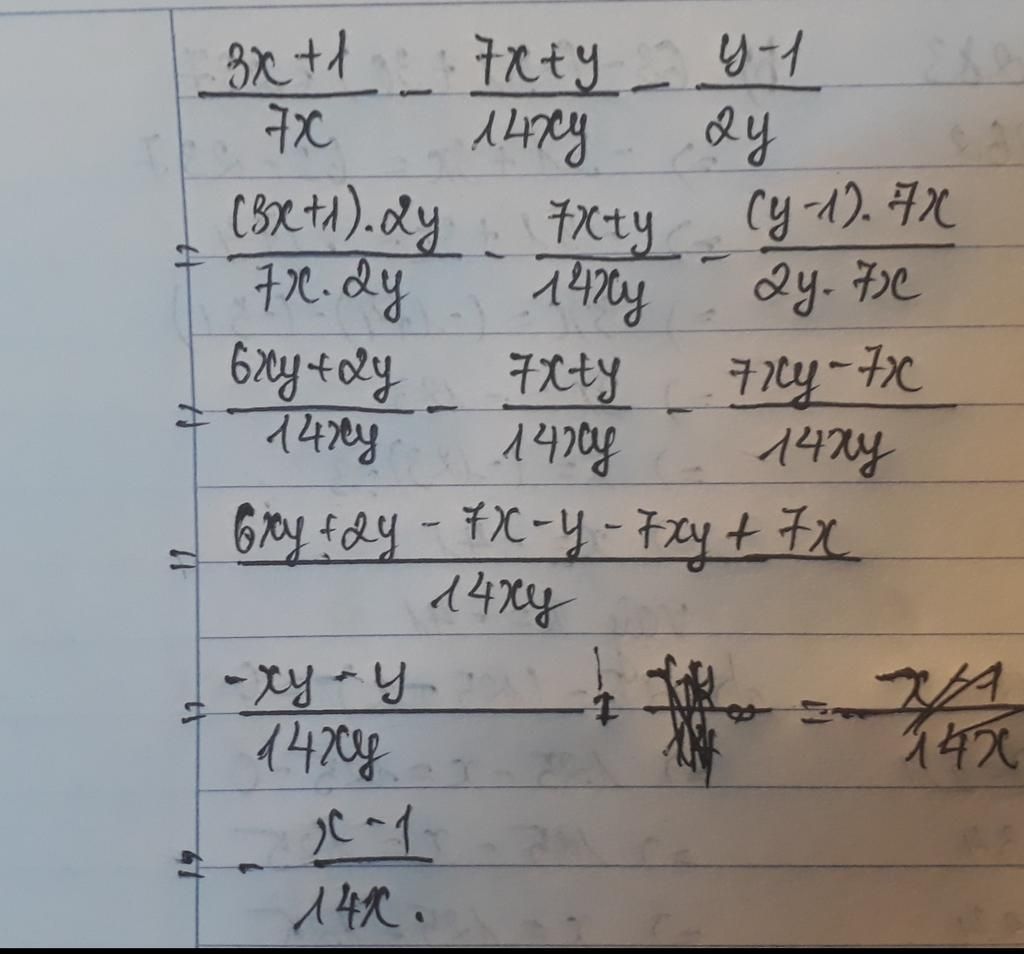 (3x+1)/(7x) - (7x+y)/(14xy) - (y-1)/(2y)
= ((3x+1).2y)/(7x.2y) - (7x+y)/(14xy) - ((y-1).7x)/(2y.7x)
= (6xy+2y)/(14xy) - (7x+y)/(14xy) - (7xy-7x)/(14xy)
= (6xy+2y-7x-y-7xy+7x)/(14xy)
= (-xy-y)/(14xy)
= -(x-1)/(14x).